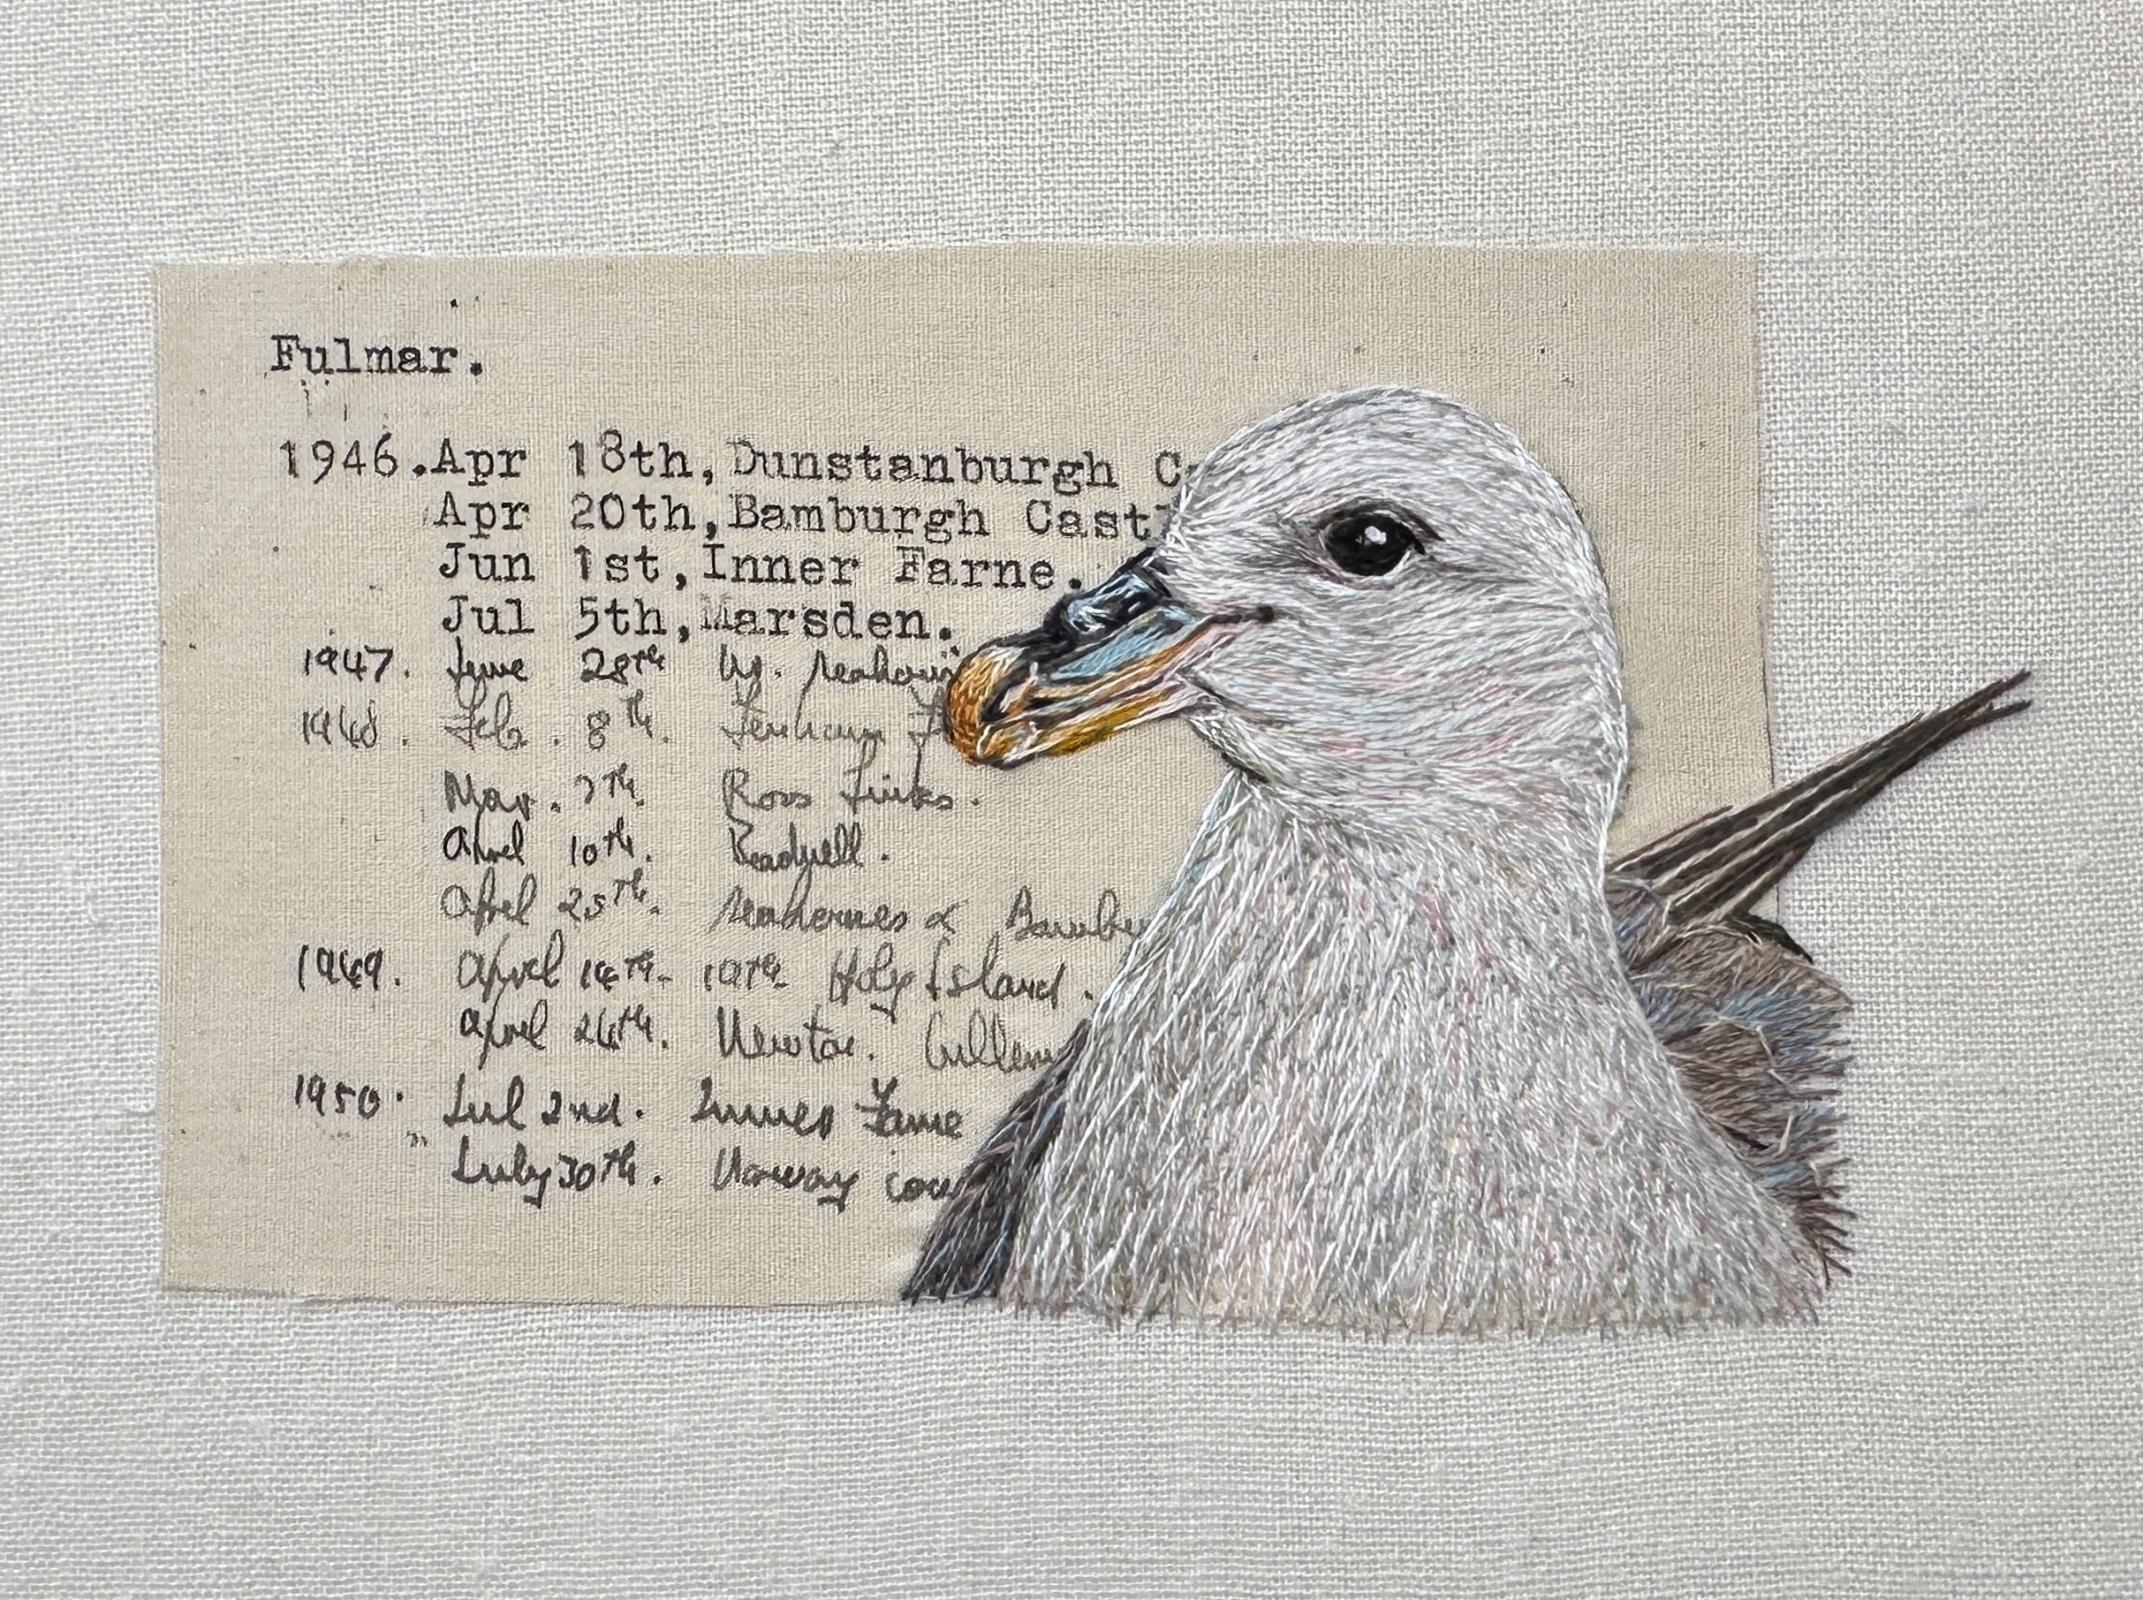 Fulmar.
1946.Apr 18th,Dunstanburgh C
Apr 20th,Bamburgh Castl
Jun 1st,Inner Farne.
Jul 5th,Marsden.
1947. June 28th
1948. Feb. 8th. Fenham Fl
Mar. 7th. Ross Links.
April 10th. Beadnell.
April 25th. Seahouses & Bambu
1949. April 14th - 19th Holy Island.
April 24th. Newton. Cullern
1950. Jul 2nd. Inner Farne
" July 30th. Norway coa